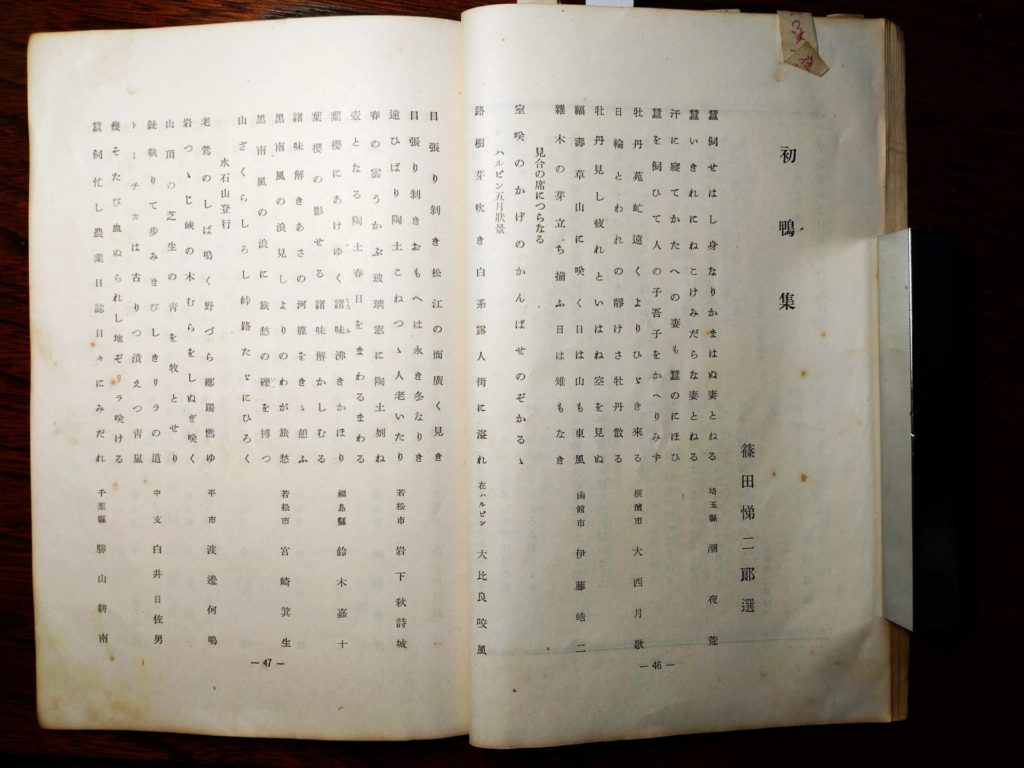 初鴨集
篠田悌二郎選
蠶飼せはし身なりかまはぬ妻とねる 埼玉縣 潮夜荒
蠶いきれにねこけみだらな妻とねる
汗に寝てかたへの妻も蠶のにほひ
蠶を飼ひて人の子吾子をかへりみず
牡丹苑虻遠くよりひゞき來る 横濱市 大西月歌
日輪とわれの靜けさ牡丹散る
牡丹見し疲れといはね空を見ぬ
福壽草山に咲く日は山も東風 函館市 伊藤皓二
雜木の芽立ち揃ふ日は雉もなき
見合の席につらなる
室咲のかげのかんばせのぞかるゝ
ハルピン五月狀景
路樹芽吹き白系露人街に溢れ 在ハルピン 大比良咬風
— 46 —
目張り剝き松江の面廣く見き
目張り剝きおもへは永き冬なりき
遠ひばり陶土こねつゝ人老いたり 若松市 岩下秋詩城
春の雲うかぶ玻璃窓に陶土刻ね
壺となる陶土春日をまわるまわる
葉櫻にあけゆく諸味沸きかほり 福島縣 鈴木嘉十
葉櫻の影せる諸味解かしむる
諸味解きあさの河鹿をきゝ憩ふ
黒南風の浪見しよりのわが旅愁 若松市 宮崎箕生
黒南風の浪に旅愁の礫を搏つ
山ざくらしろし峠路たゞにひろく
水石山登行
老鶯のしば鳴く野づら躑躅燃ゆ 平市 渡邊何鳴
岩つゝじ峡の木むらをしぬぎ咲く
山頂の芝生の青を牧とせり
銃執りて歩みきびしきリラの道 中支 白井日佐男
トーチカは古りつ潰えつ青嵐
幾そたび血ぬられし地ぞリラ咲ける
蠶飼忙し農業日誌日々にみだれ 千葉縣 勝山耕南
— 47 —